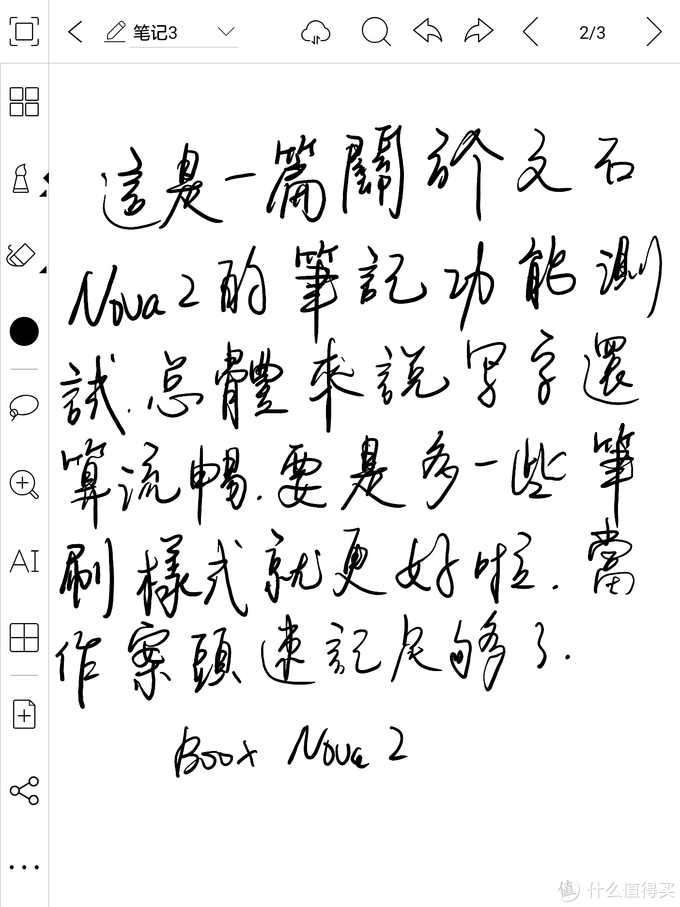 笔记3
2/3
AI
這是一篇關於文石
Nova 2 的筆記功能測
試.总體來說写字還
算流暢.要是多一些筆
刷樣式就更好啦.當
作案頭速記足够了.
Boox Nova 2
值 什么值得买